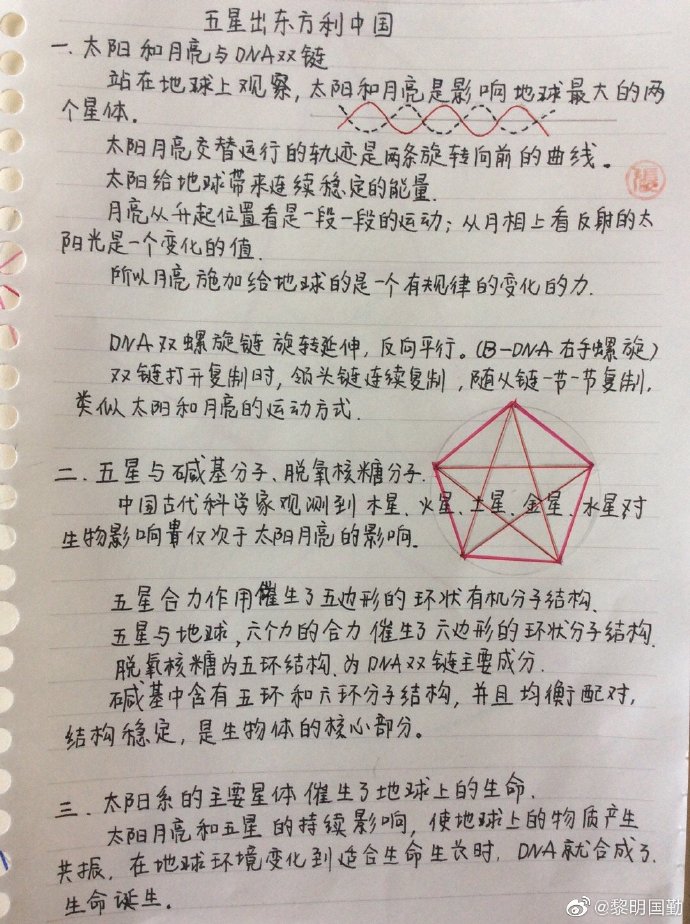 五星出东方利中国
一、太阳和月亮与DNA双链
站在地球上观察，太阳和月亮是影响地球最大的两
个星体.
太阳月亮交替运行的轨迹是两条旋转向前的曲线。
太阳给地球带来连续稳定的能量.
月亮从升起位置看是一段一段的运动；从月相上看反射的太
阳光是一个变化的值.
所以月亮施加给地球的是一个有规律的变化的力.
DNA双螺旋链旋转延伸，反向平行。(B-DNA右手螺旋)
双链打开复制时，领头链连续复制，随从链一节一节复制，
类似太阳和月亮的运动方式.
二、五星与碱基分子、脱氧核糖分子.
中国古代科学家观测到木星、火星、土星、金星、水星对
生物影响仅次于太阳月亮的影响.
五星合力作用催生了五边形的环状有机分子结构.
五星与地球，六个力的合力催生了六边形的环状分子结构.
脱氧核糖为五环结构.为DNA双链主要成分.
碱基中含有五环和六环分子结构，并且均衡配对，
结构稳定，是生物体的核心部分。
三、太阳系的主要星体催生了地球上的生命.
太阳月亮和五星的持续影响，使地球上的物质产生
共振，在地球环境变化到适合生命生长时，DNA就合成了.
生命诞生。
@黎明国勤